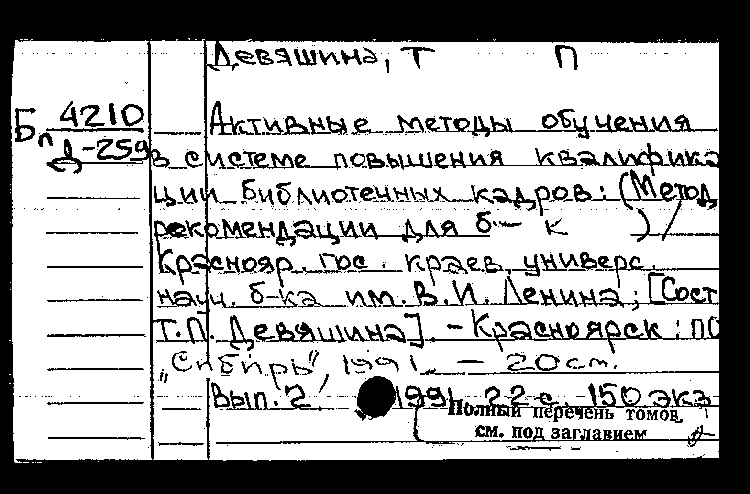 Девяшина, Т П
Бп 4210
Д-259
Активные методы обучения
в системе повышения квалифика
ции библиотечных кадров: (Метод
рекомендации для б- к )/
Краснояр. гос. краев. универс.
науч. б-ка им. В.И. Ленина; [Сост
Т.П. Девяшина]. - Красноярск: ПО
"Сибирь", 1991. - 20 см.
Вып. 2. 1991. 22 с. 150 экз
Полный перечень томов
см. под заглавием